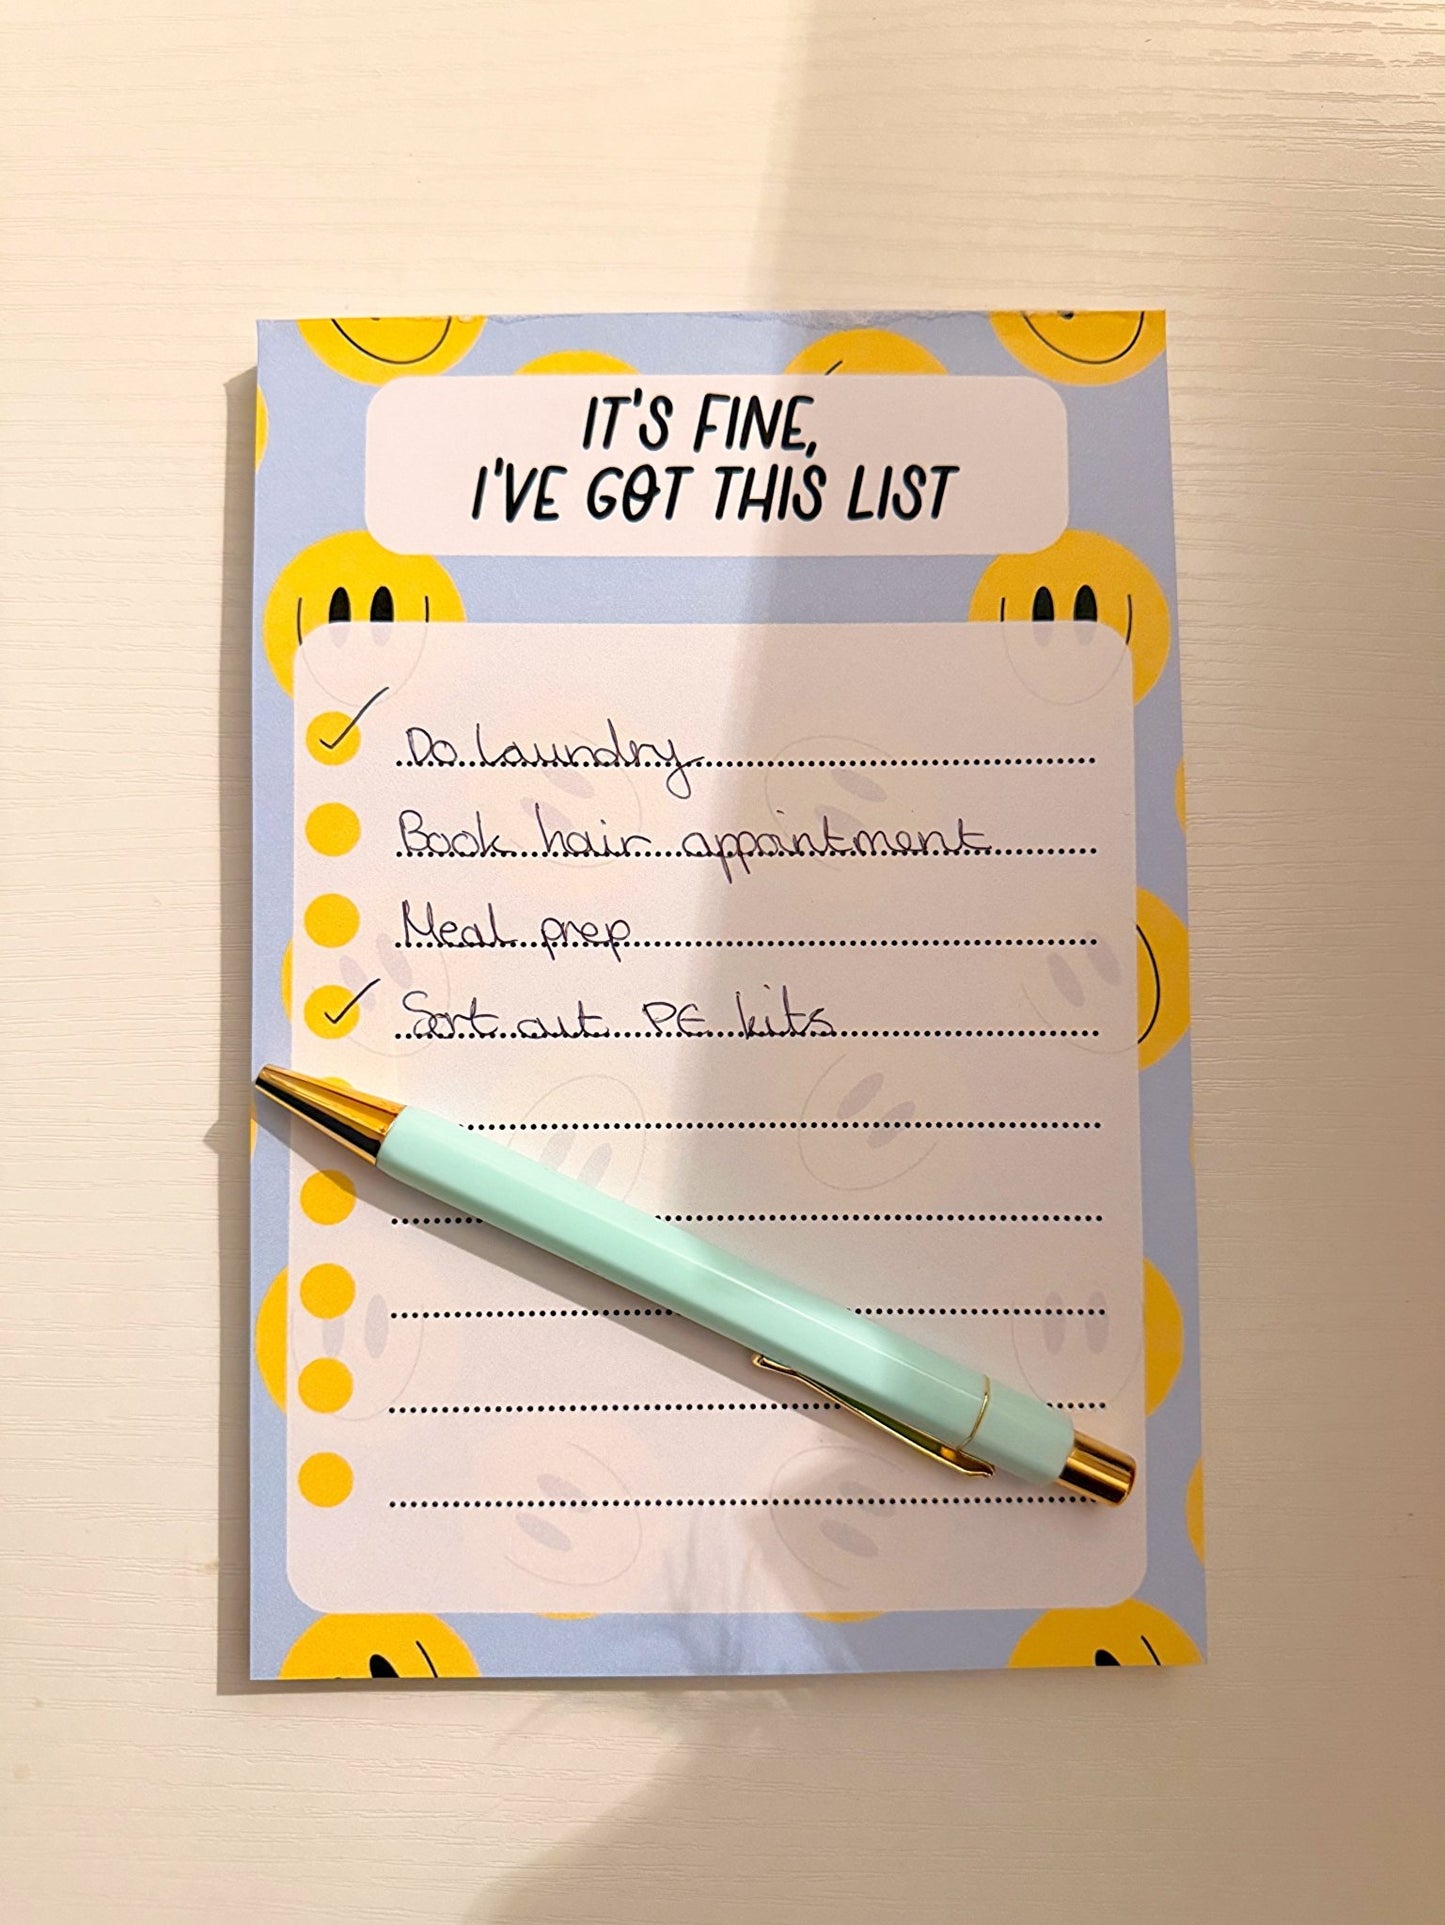 IT'S FINE,
I'VE GOT THIS LIST
Do laundry
Book hair appointment
Meal prep
Sort out PE kits